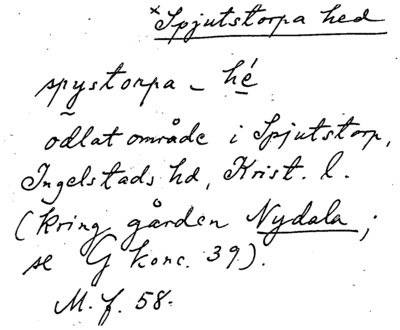 ×Spjutstorpa hed
spystorpa - hé
odlat område i Spjutstorp,
Ingelstads hd, Krist. l.
(kring gården Nydala;
se G konc. 39).
M. f. 58.